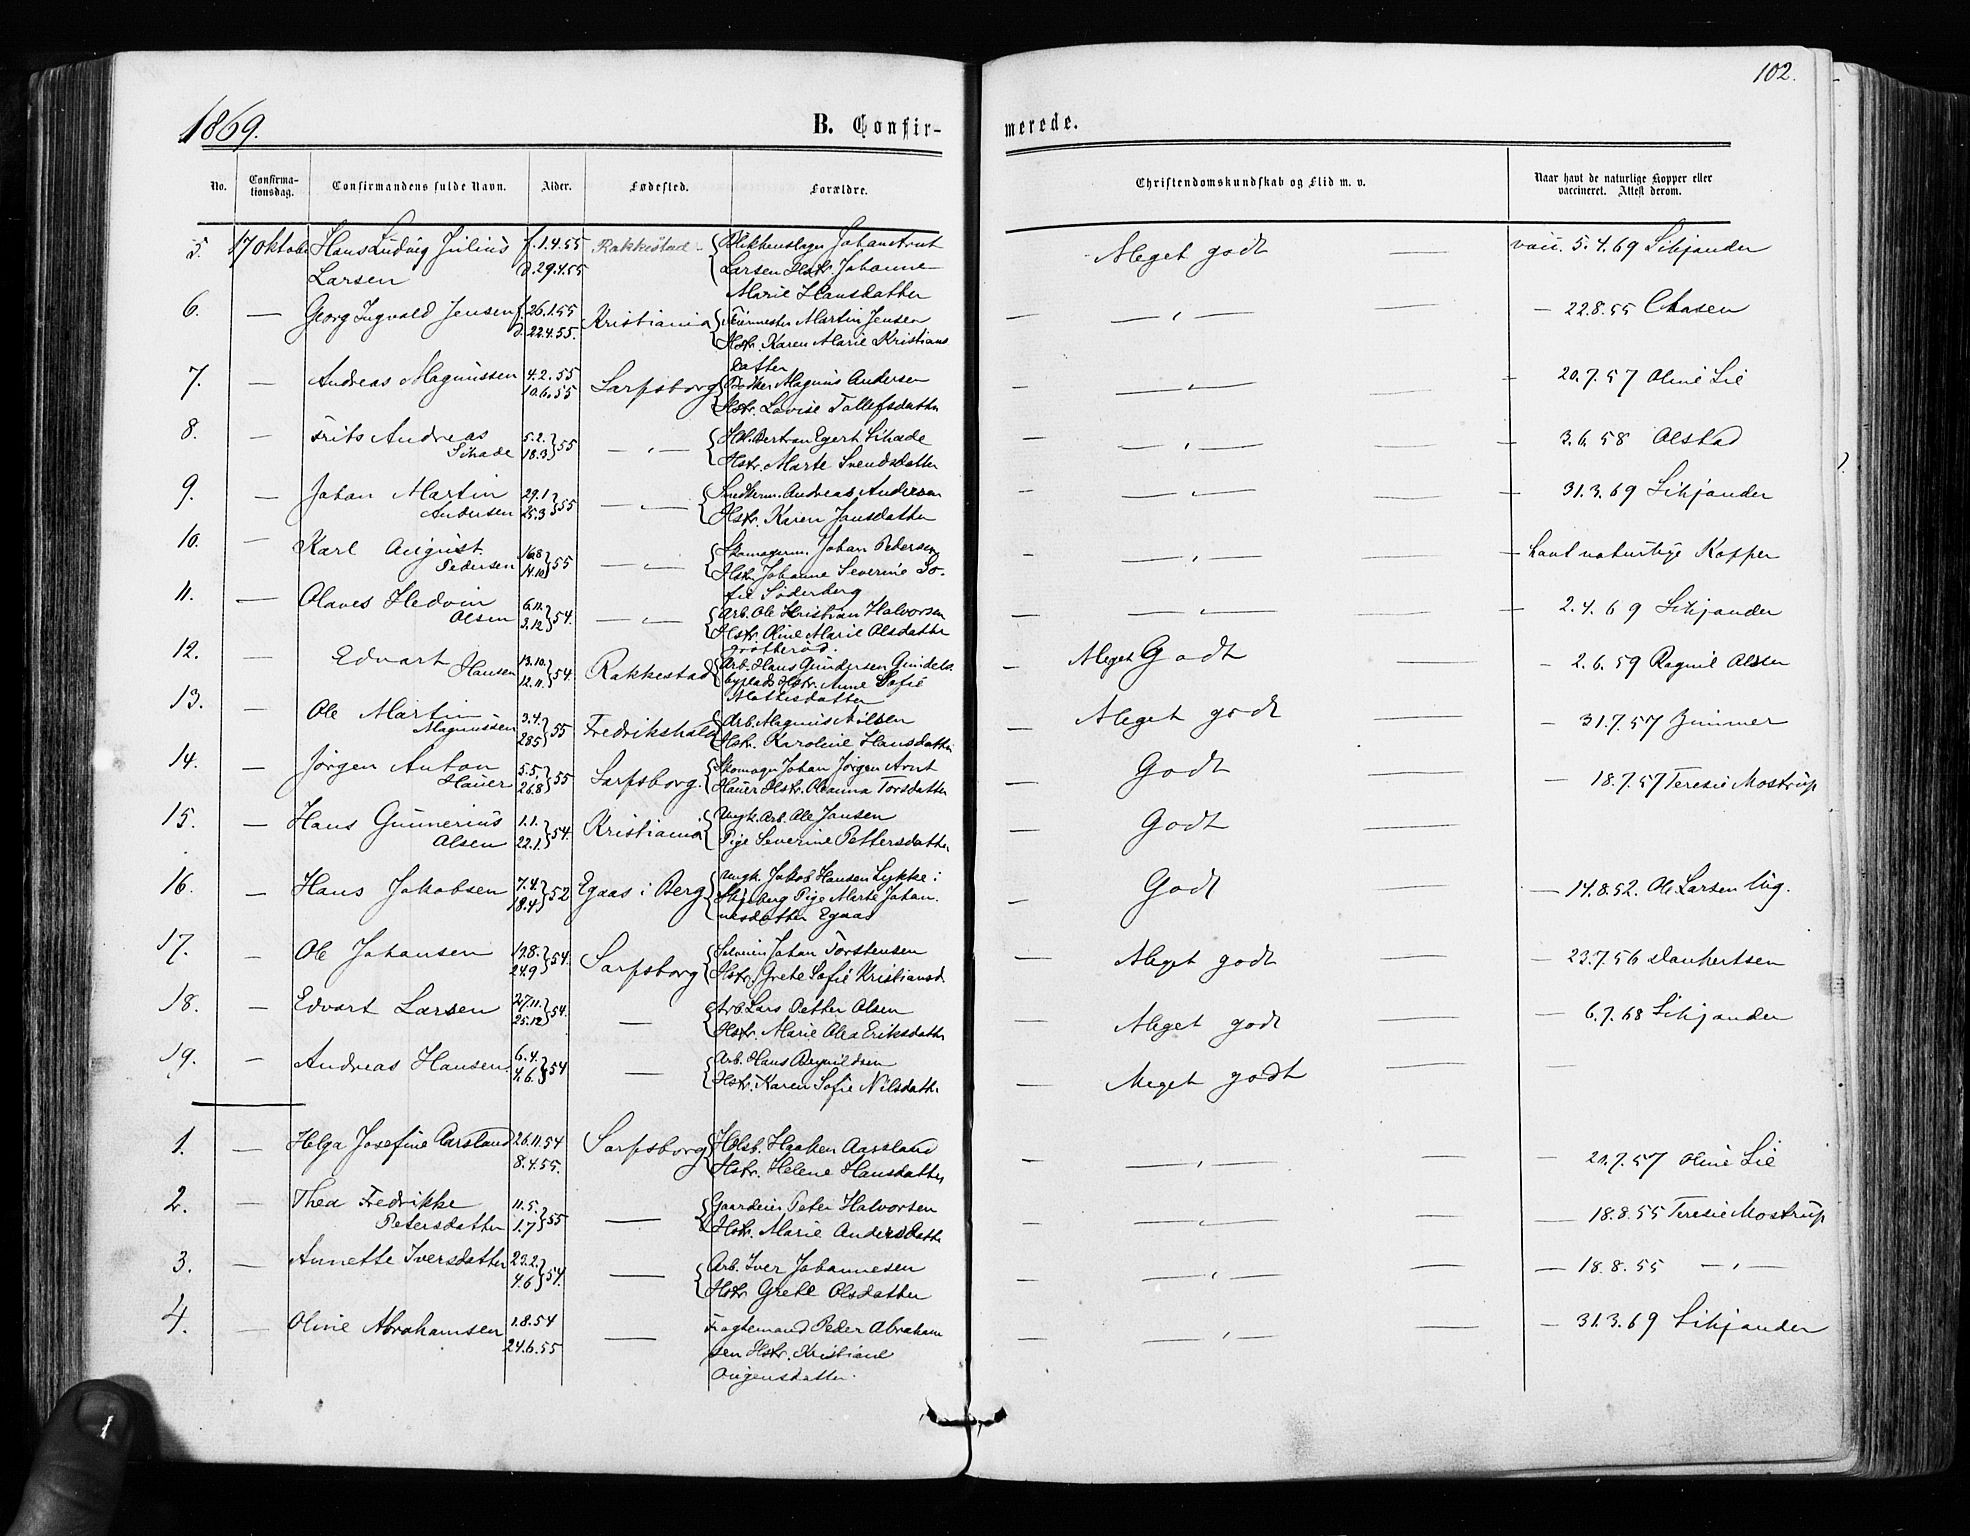 102.
1869.
B. Confir-
merede.
No. Confirma-tionsdag. Confirmandens fulde Navn. Alder. Fødested. Forældre. Christendomskundskab og Flid m. v. Naar havt de naturlige Kopper eller vaccineret. Attest derom.
5. 17 Oktobe Hans Ludvig Julius f. 1.4.55 Rakkestad Johan Arnt Meget godt — vacc. 5.4.69 Silejander
Larsen d. 29.4.55 Larsen Hstr. Johanne
Marie Hansdatter
6. — Georg Ingvald Jensen f. 26.1.55 Kristiania Martin Jensen — „ — — — 22.8.55 Clasen
d. 22.4.55. Hstr. Karen Marie Kristians
datter
7. — Andreas Magnussen 4.2.55 Sarpsborg Magnus Andersen — „ — — — 20.7.57 Oline Lie
10.6.55 Hstr. Lovise Tollefsdatter
8. — Frits Andreas 5.2. } 55 — „ — Bertran Egert Schade — „ — — — 3.6.58 Olstad
Schade 18.3 Hstr. Marte Svendsdatter
9. — Johan Martin 29.1 } 55 — „ — Snedkerm. Andreas Andersen — „ — — — 31.3.69 Silejander
Andersen 25.3 Hstr. Karen Jansdatter
10. — Karl August 16.8 } 55 — „ — Skomagerm. Johan Pedersen — „ — — — havt naturlige Kopper
Pedersen 14.10 Hstr. Johanne Severine So-
fie Söderberg
11. — Olaves Hedvin 6.11. } 54. — „ — Arb. Ole Kristian Halvorsen — „ — — — 2.4.69 Silejander
Olsen 3.12 Hstr. Oline Marie Olsdatter
12. — Edvart Hansen 13.10. } 54. Rakkestad Arb. Hans Gundersen — Meget Godt — — 2.6.59 Ragnil Olsen
12.11. Hstr. Anne Sofie
Mathisdatter
13. — Ole Martin 3.4. } 55 Fredrikshald Arb. Magnus Nilsen — Meget godt — — 31.7.57 Zimmer
Magnussen 28.5 Hstr. Karoline Hansdatter
14. — Jörgen Anton 5.5. } 55 Sarpsborg. Skomagr Johan Jörgen Arnt — Godt — — 18.7.57 Teresie Mostrup
Hauer 26.8 Hauer Hstr. Oleanna Torsdatter
15. — Hans Gunnerius 1.1. } 54. Kristiania Ungk. Arb. Ole Jansen — Godt —
Olsen 22.1 Pige Severine Pettersdatter
16. — Hans Jakobsen 7.4. } 52 Egaas i Berg Ungk. Jakob Hansen Lykke i — Godt — — 14.8.52. Ole Larsen Lüg.
18.4 Skjeberg Pige Marte Johan-
nesdatter Egaas
17. — Ole Johansen 19.8. } 54. Sarpsborg Johan Torstensen — Meget godt — — 23.7.56 Dankertsen
24.9 Hstr. Grete Sofie Kristiansd.
18. — Edvart Larsen 27.11. } 54. — Arb Lars Petter Olsen — Meget godt — — 6.7.68 Silejander
25.12 Hstr. Marie Olea Eriksdatter
19. — Andreas Hansen. 6.4. } 54 — Arb. Hans — Meget godt — —
4.6. Hstr. Karen Sofie Nilsdatter
1. — Helga Josefine Aarsland 26.11.54 Sarpsborg Haaken Aarsland — — „ — — — 20.7.57 Oline Lie
8.4.55. Hstr. Helene Hansdatter
2. — Thea Fredrikke 11.5. } 55 — Gaardeier Peter Halvorsen — — „ — — — 18.8.55 Teresie Mostrup
Petersdatter 1.7 Hstr. Marie Andersdatter
3. — Annette Iversdatter 23.2. } 54. — Arb. Iver Johannesen — — „ — — — 18.8.55 — „ —
4.6 Hstr Grete Olsdatter
4. — Oline Abrahamsen 1.8.54 — Fragtemand Peder Abraham — — „ — — — 31.3.69 Silejander
24.6.55 sen Hstr. Kristiane